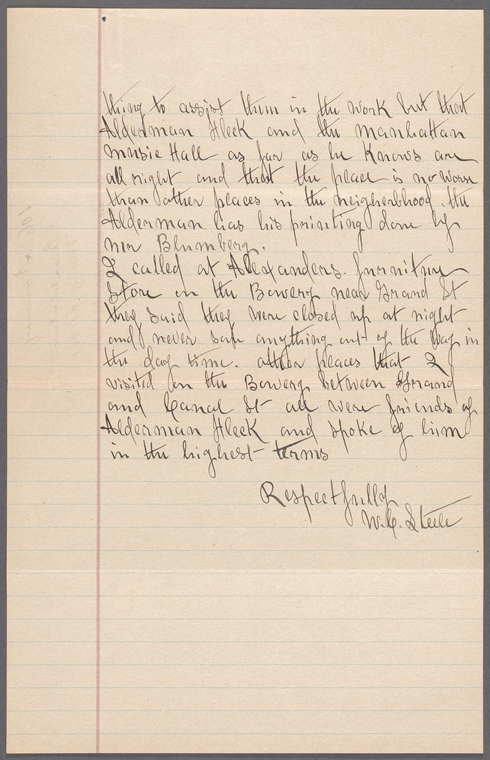 thing to assist them in the work but that
Alderman Fleck and the Manhattan
Music Hall as far as he Knows are
all right and that the place is no worse
than other places in the neigherbhood. the
Alderman has his printing done by
mr Blumberg.
I called at Alexanders. furniture
Store in the Bowery near Grand St
they said they were closed up at night
and never saw anything out of the Way in
the day time. other places that I
visited in the Bowery between Grand
and Canal St all were friends of
Alderman Fleck and spoke of him
in the highest terms
Respectfully
W.C. Steele